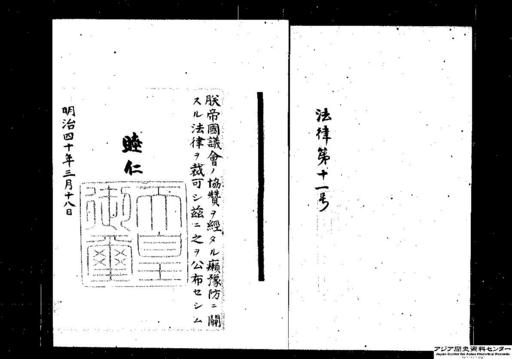 法律第十一号
朕帝國議會ノ協賛ヲ經タル癩豫防ニ關
スル法律ヲ裁可シ茲ニ之ヲ公布セシム
睦仁
天皇
御璽
明治四十年三月十八日
アジア歴史資料センター
Japan Center for Asian Historical Records